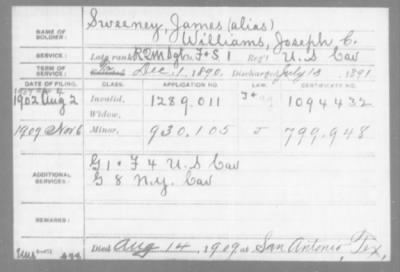 NAME OF SOLDIER: Sweeney, James (alias)
Williams, Joseph C.
SERVICE: Late rank R2M Sgt Co. F+S 1 Reg't U.S Cav
TERM OF SERVICE: Enlisted Dec. 1, 1890. Discharged July 13, 1891
DATE OF FILING. CLASS. APPLICATION NO. LAW. CERTIFICATE NO.
1902 Aug 2 Invalid, 1289.011 1094432
Widow,
1909 Nov 6 Minor, 930.105 799,948
ADDITIONAL SERVICES: G 1 + F 4 U.S Cav
G 8 N.Y. Cav
REMARKS:
Died Aug 14, 1909, at San Antonio, Tex,